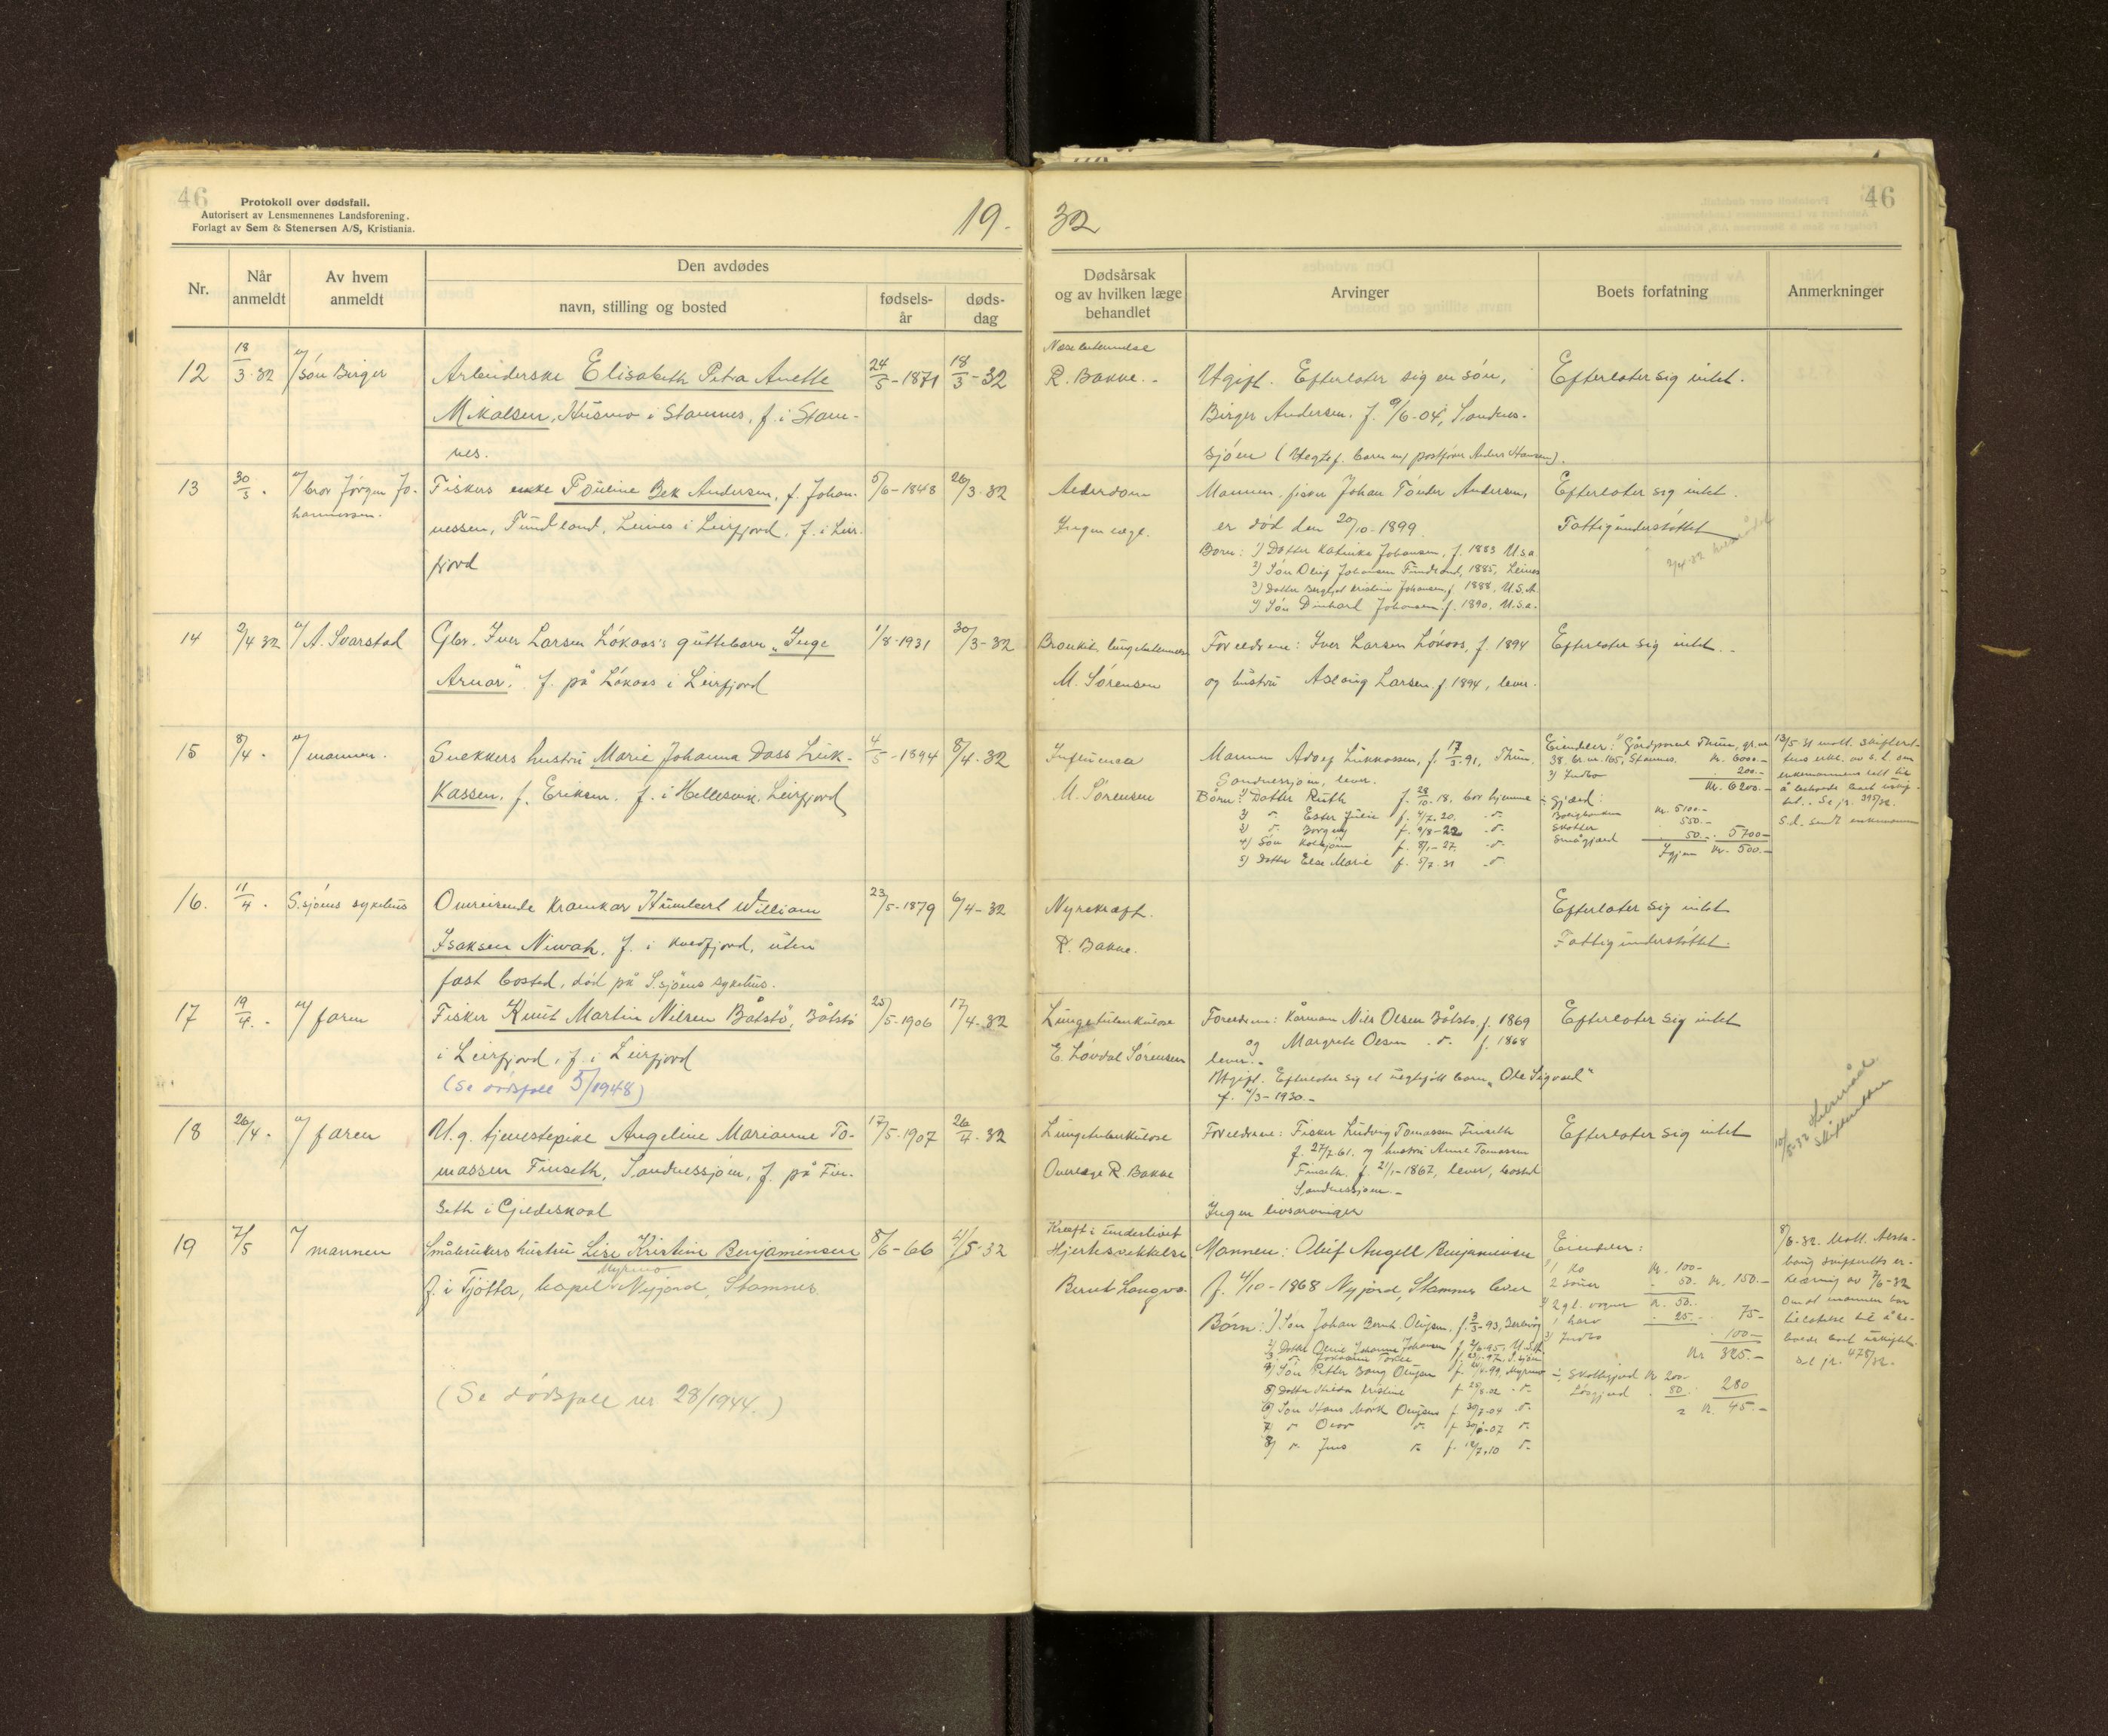 46
Protokoll over dødsfall.
Autorisert av Lensmennenes Landsforening.
Forlagt av Sem & Stenersen A/S, Kristiania.
19.
32
46
Nr.
Når anmeldt
Av hvem anmeldt
Den avdødes
navn, stilling og bosted
fødselsår
dødsdag
Dødsårsak og av hvilken læge behandlet
Arvinger
Boets forfatning
Anmerkninger
12
18/3-32
v/ søn Birger
Arbeiderske Elisabeth Petra Anette
Mikalsen, Husmo i Stamnes, f. i Stam-
nes.
24/5-1871
18/3-32
R. Bakke.-
Ugift. Efterlater sig en søn,
Birger Andersen, f. 9/6-04, Sandnes-
sjøen (Uegte f. barn m/ postfører Anders Hansen).
Efterlater sig intet.
13
30/3.
v/ bror Jørgen Jo-
hannessen.
Fiskers enke Pauline Bek Andersen, f. Johan-
nessen, Fundland, Leines i Leirfjord, f. i Leir-
fjord
5/6-1848
26/3-32
Alderdom
Ingen læge.
Mannen, fisker Johan Tønder Andersen,
er død den 20/10-1899.
Barn: 1) Datter Katinka Johansen, f. 1883 U.s.a.
2) Søn Oluf Johansen Fundland, 1885, Leines
3) Datter Bergljot Kristine Johansen f. 1888, U.S.A.
4) Søn Johansen f. 1890, U.s.a.
Efterlater sig intet.
Fattigunderstøttet
14
2/4 32
v/ A. Svarstad
Gbr. Iver Larsen Løkaas's guttebarn "Inge
Arnar". f. på Løkaas i Leirfjord
1/8-1931
30/3-32
Bronkit, lungebetennelse
M. Sørensen
Foreldrene: Iver Larsen Løkaas, f. 1894
og hustru Aslaug Larsen f 1894, lever.
Efterlater sig intet.-
15
8/4.
v/ mannen.
Snekkers hustru Marie Johanna Dass Luk-
kassen, f. Eriksen. f. i Hellesvik, Leirfjord
4/5-1894
8/4-32
Influensa
M. Sørensen
Mannen Adolf Lukkassen, f. 17/3.91, Thun,
Sandnessjøen, lever.
Børn: 1) Datter Ruth f. 28/10-18, bor hjemme
2) d. Ester Julie f. 4/7-20. -d-
3) d. Borgny f. 9/8-22 -d-
4) Søn Kolbjørn f. 8/1-27. -d-
5) Datter Else Marie f. 5/7-31 -d-
Eiendeler: 1) Gårdparsel Thun, gr.nr
38, br.nr. 165, Stamnes. kr. 6000.-
2) Indbo 200.-
kr. 6200.-
÷ Gjæld:
kr. 5100.-
Skatter 550.-
Smågjæld 50.- 5700-
Igjen kr. 500.-
16.
11/4.
S.sjøens sykehus
Omreisende kramkar Humbert William
Isaksen Niwah, f. i Kvæfjord, uten
fast bosted, død på S.sjøens sykehus.
23/5-1879
6/4-32
Nyrekreft.
R. Bakke.
Efterlater sig intet
Fattigunderstøttet.
17
19/4.-
v/ faren
Fisker Knut Martin Nilsen Båtstø, Båtstø
i Leirfjord, f. i Leirfjord
(Se dødsfall 5/1948)
25/5-1906
17/4-32
Lungetuberkulose
E. Løvdal Sørensen
Foreldrene: Kårmann Nils Olsen Båtstø, f. 1869
og Margrete Olsen -d- f. 1868
lever.-
Ugift. Efterlater sig et uegteføtt barn "Ole Sigvard"
f. 4/3-1930.-
Efterlater sig intet
18
26/4.
v/ faren
U.g. tjenestepike Angeline Marianne To-
massen Finseth, Sandnessjøen, f. på Fin-
seth i Gjildeskaal
17/5-1907
26/4-32
Lungetuberkulose
Overlæge R. Bakke
Foreldrene: Fisker Ludvig Tomassen Finseth
f. 27/7-61. og hustru Anne Tomassen
Finseth, f. 21/1-1867, lever, bosted
Sandnessjøen.-
Ingen livsarvinger
Efterlater sig intet
19
7/5
v/ mannen
Småbrukers hustru Lise Kristine Benjaminsen
Myrmo
f. i Tjøtta, bopel Nyjord, Stamnes
(Se dødsfall nr 28/1944.)
8/6-66
4/5-32
Kreft i underlivet
Hjertesvekkelse
Bernt Langvo.
Mannen: Oluf Angell Benjaminsen
f. 4/10-1868 Nyjord, Stamnes lever
Børn: 1) Søn Johan Bernt Olufsen, f. 3/3-93,
4) Søn Petter Bang Olufsen
5) Datter Hilda Kristine
6) Søn Hans Mørk Olufsen f 30/7-04 d-
7) d- f 30/6-07 d-
8) d- Jens d- f. 12/7-10 d-
Eiendeler:
1 ko kr. 100-
2 sauer 50. kr. 150.-
2) 2 gl. vogner kr. 50.-
1 harv 25.- 75-
3) Indbo 100-
kr 325.-
÷ Skattegjeld kr 200-
Løsgjeld 80. 280
= kr. 45.-